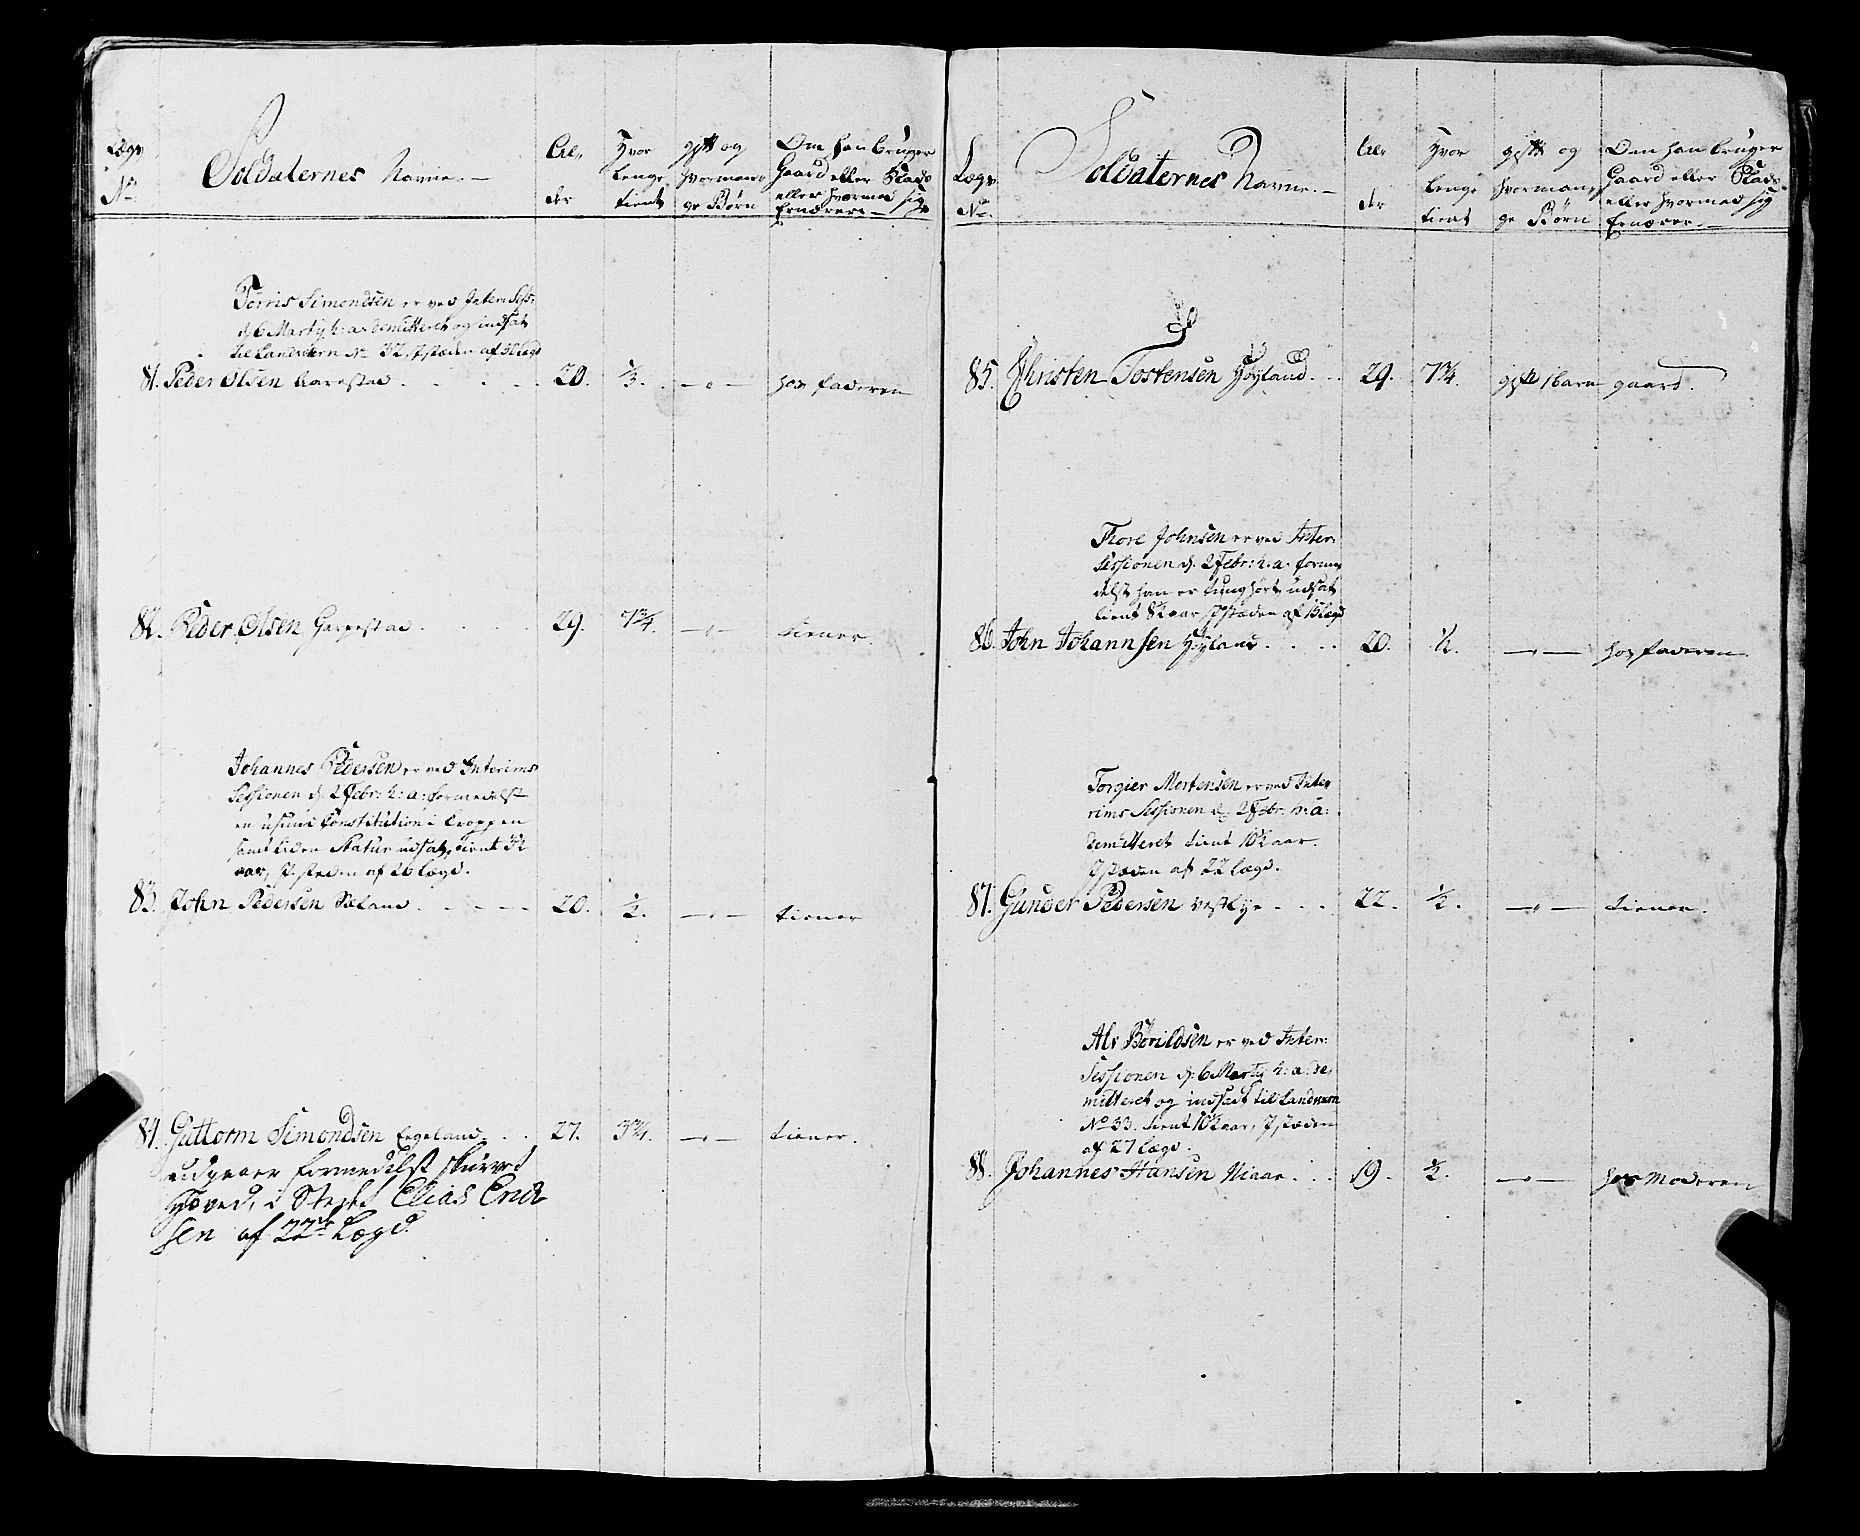 Lægs No
Soldaternes Navne.
Al„ der
Hvor lenge tient
gift og hvormange Børn
Om han bruger Gaard eller Plads eller hvormed sig Ernærer
Tørris Simondsen er ved Interi Sess:
d. 6 Marty h: a: demitteret og indsat
til Landvern No 32, I stæden af
81. Peder Olsen Aarestad . . . 20. ⅓. — hos faderen
82. Peder Olsen Garpestad . . . 29. 7¾. — tiener.
Johannes Pedersen er ved Interims
Sessionen d. 2 Febr: h: a: formedelst
en usund Constitution i Kroppen
samt liden Statur udsat, tient 3½
aar, I steden af 26 Lægd.
83. John Pedersen Sæland . . . 20. ½. — tiener
84. Guttorm Simondsen Eegeland . . 27. 3¾. — tiener.
udgaaer formedelst skurvet
Hoved, i Stedet Elias Erich
sen af 22de Lægd.
Lægs No
Soldaternes Navne.
Al„ der
Hvor lenge tient
gift og hvormange Børn
Om han bruger Gaard eller Plads eller hvormed sig Ernærer.
85. Christen Tostensen Høyland . . 29. 7¾. gift 1 barn gaard.
Thore Johnsen er ved Inter:
Sessionen d. 2 Febr: h. a. forme
delst han er tunghørt udsat
tient 8½ aar I stæden af Lægd
86. John Johannsen Høyland . . . 20. ½. — hos faderen.
Torgier Mortensen er ved Inte
rims Sessionen d. 2 Febr. h: a:
demitteret tient 10½ aar.
I stæden af 22 Lægd.
87. Gunder Pedersen Vestlye . . . 22. ½. — tiener.
Alv Børildsen er ved Inter:
Sessionen d. 6 Marty h: a: de„
mitteret og indsadt til Landvern
No 33. tient 10½ aar, I stæden
af 27 Lægd.
88. Johannes Hansen Niaae . . . 19. ½. — hos Moderen